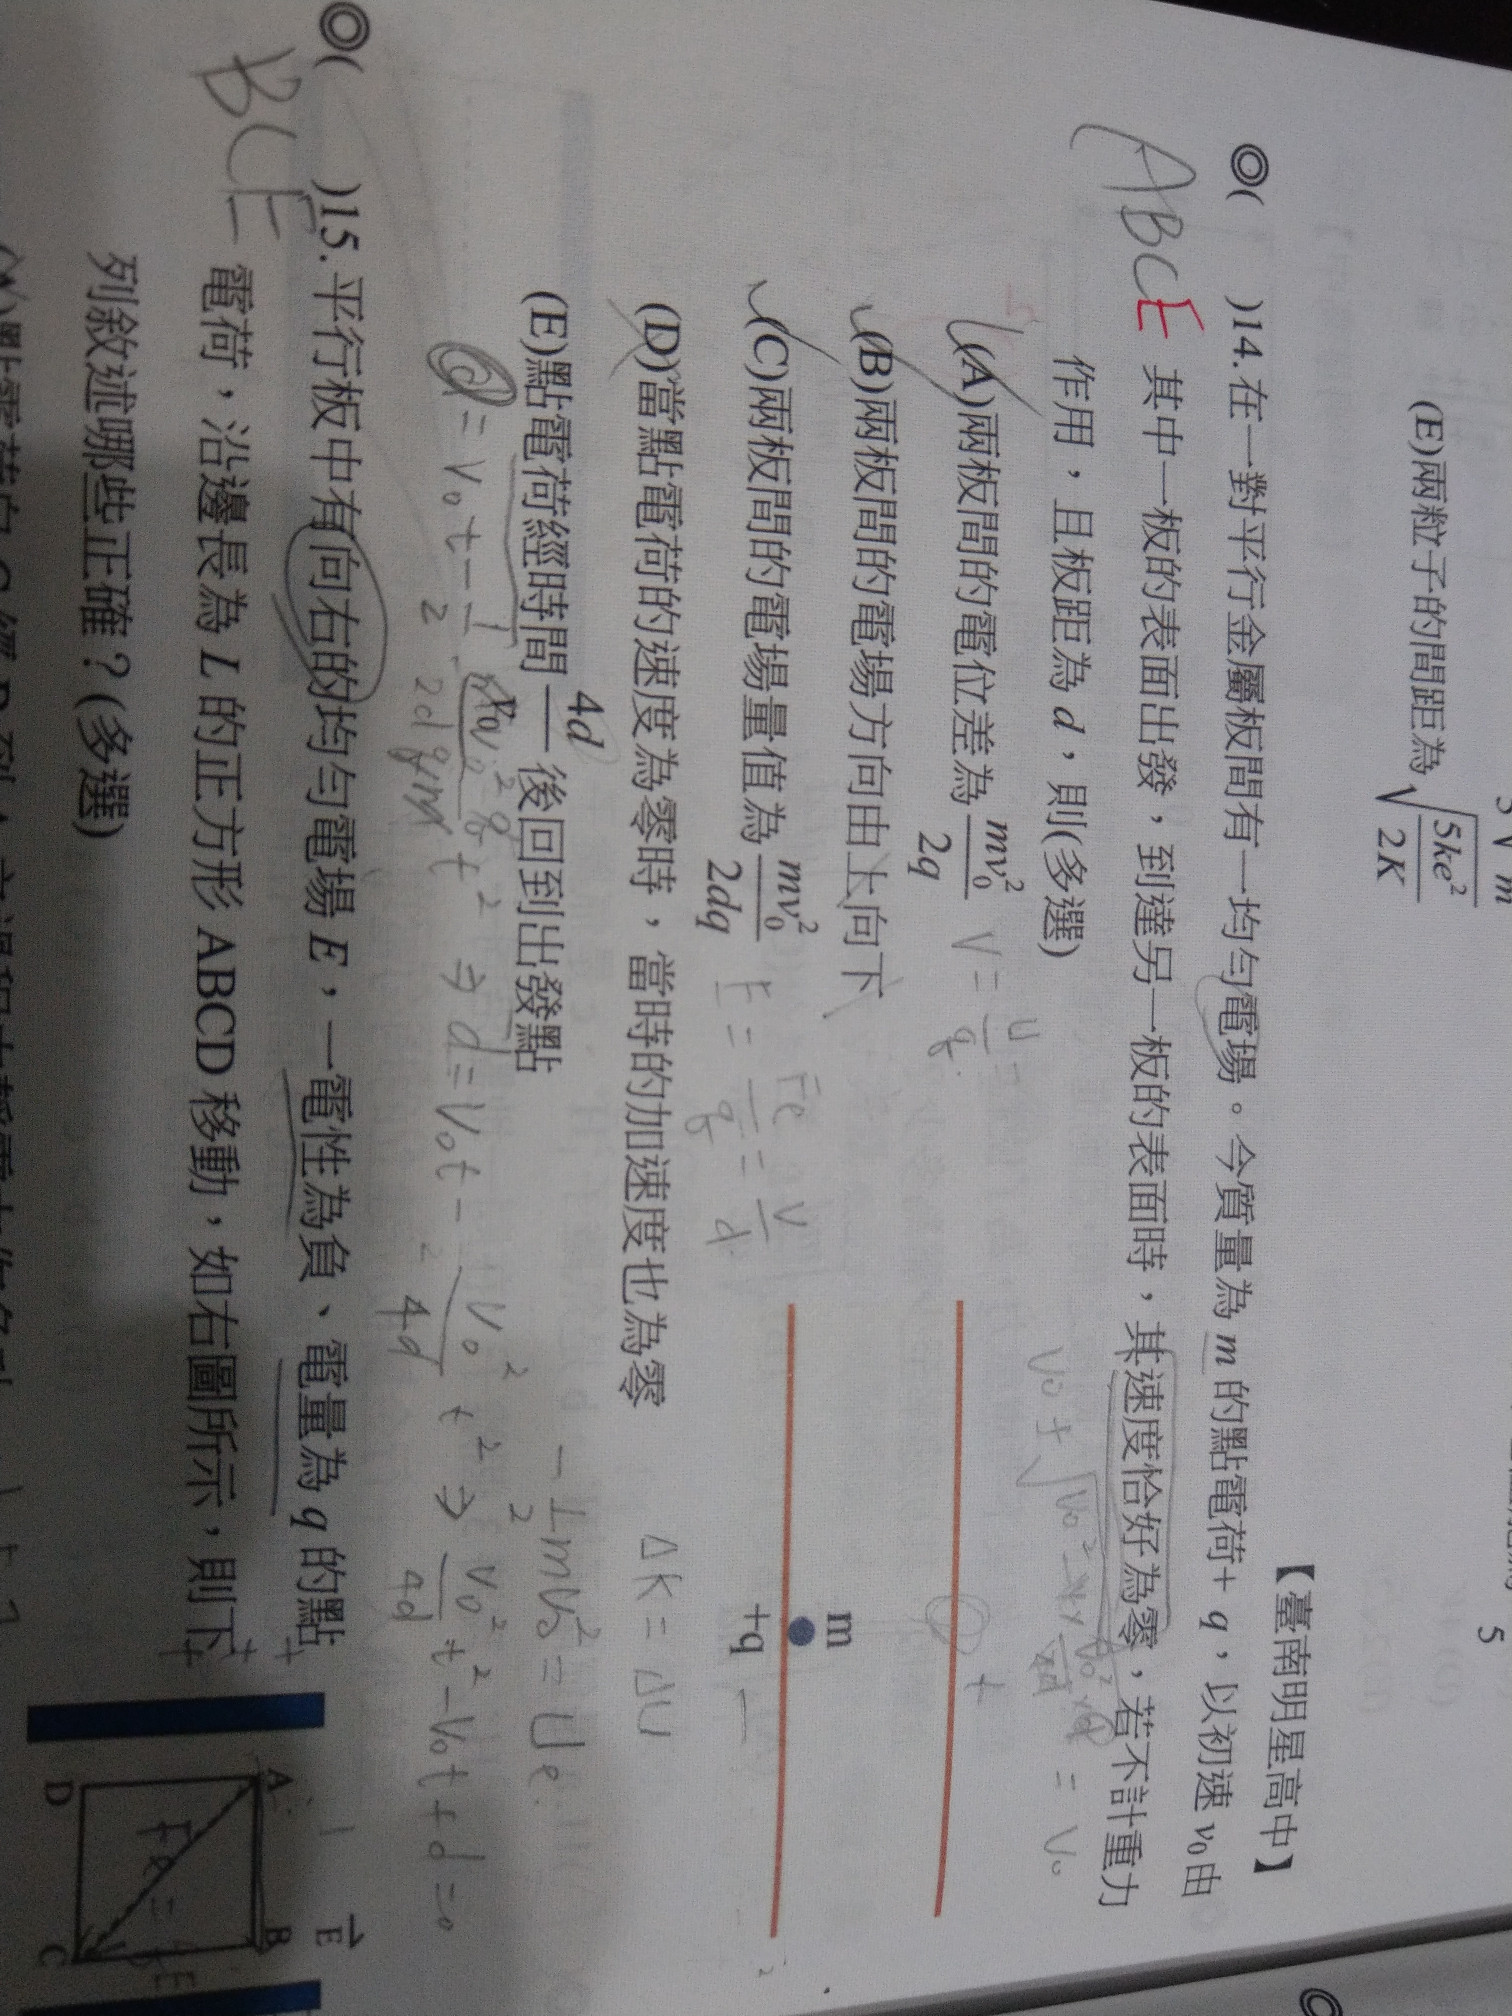 (E)兩粒子的間距為√(5ke²/2K)
【臺南明星高中】
◎( )14.在一對平行金屬板間有一均勻電場。今質量為 m 的點電荷+ q,以初速 v₀由
ABCE
其中一板的表面出發,到達另一板的表面時,其速度恰好為零,若不計重力
作用,且板距為 d,則(多選)
(A)兩板間的電位差為 mv₀²/2q
(B)兩板間的電場方向由上向下
(C)兩板間的電場量值為 mv₀²/2dq
E = Fe/q = V/d
m
+q
(D)當點電荷的速度為零時,當時的加速度也為零
ΔK = ΔU
(E)點電荷經時間 4d/ 後回到出發點
⇒ d = v₀t - v₀²/4d t² ⇒ v₀²/4d t² - v₀t + d = 0
◎( )15.平行板中有向右的均勻電場 E,一電性為負、電量為 q 的點
BCE
電荷,沿邊長為 L 的正方形 ABCD 移動,如右圖所示,則下
列敘述哪些正確?(多選)
E
A
B
D
C